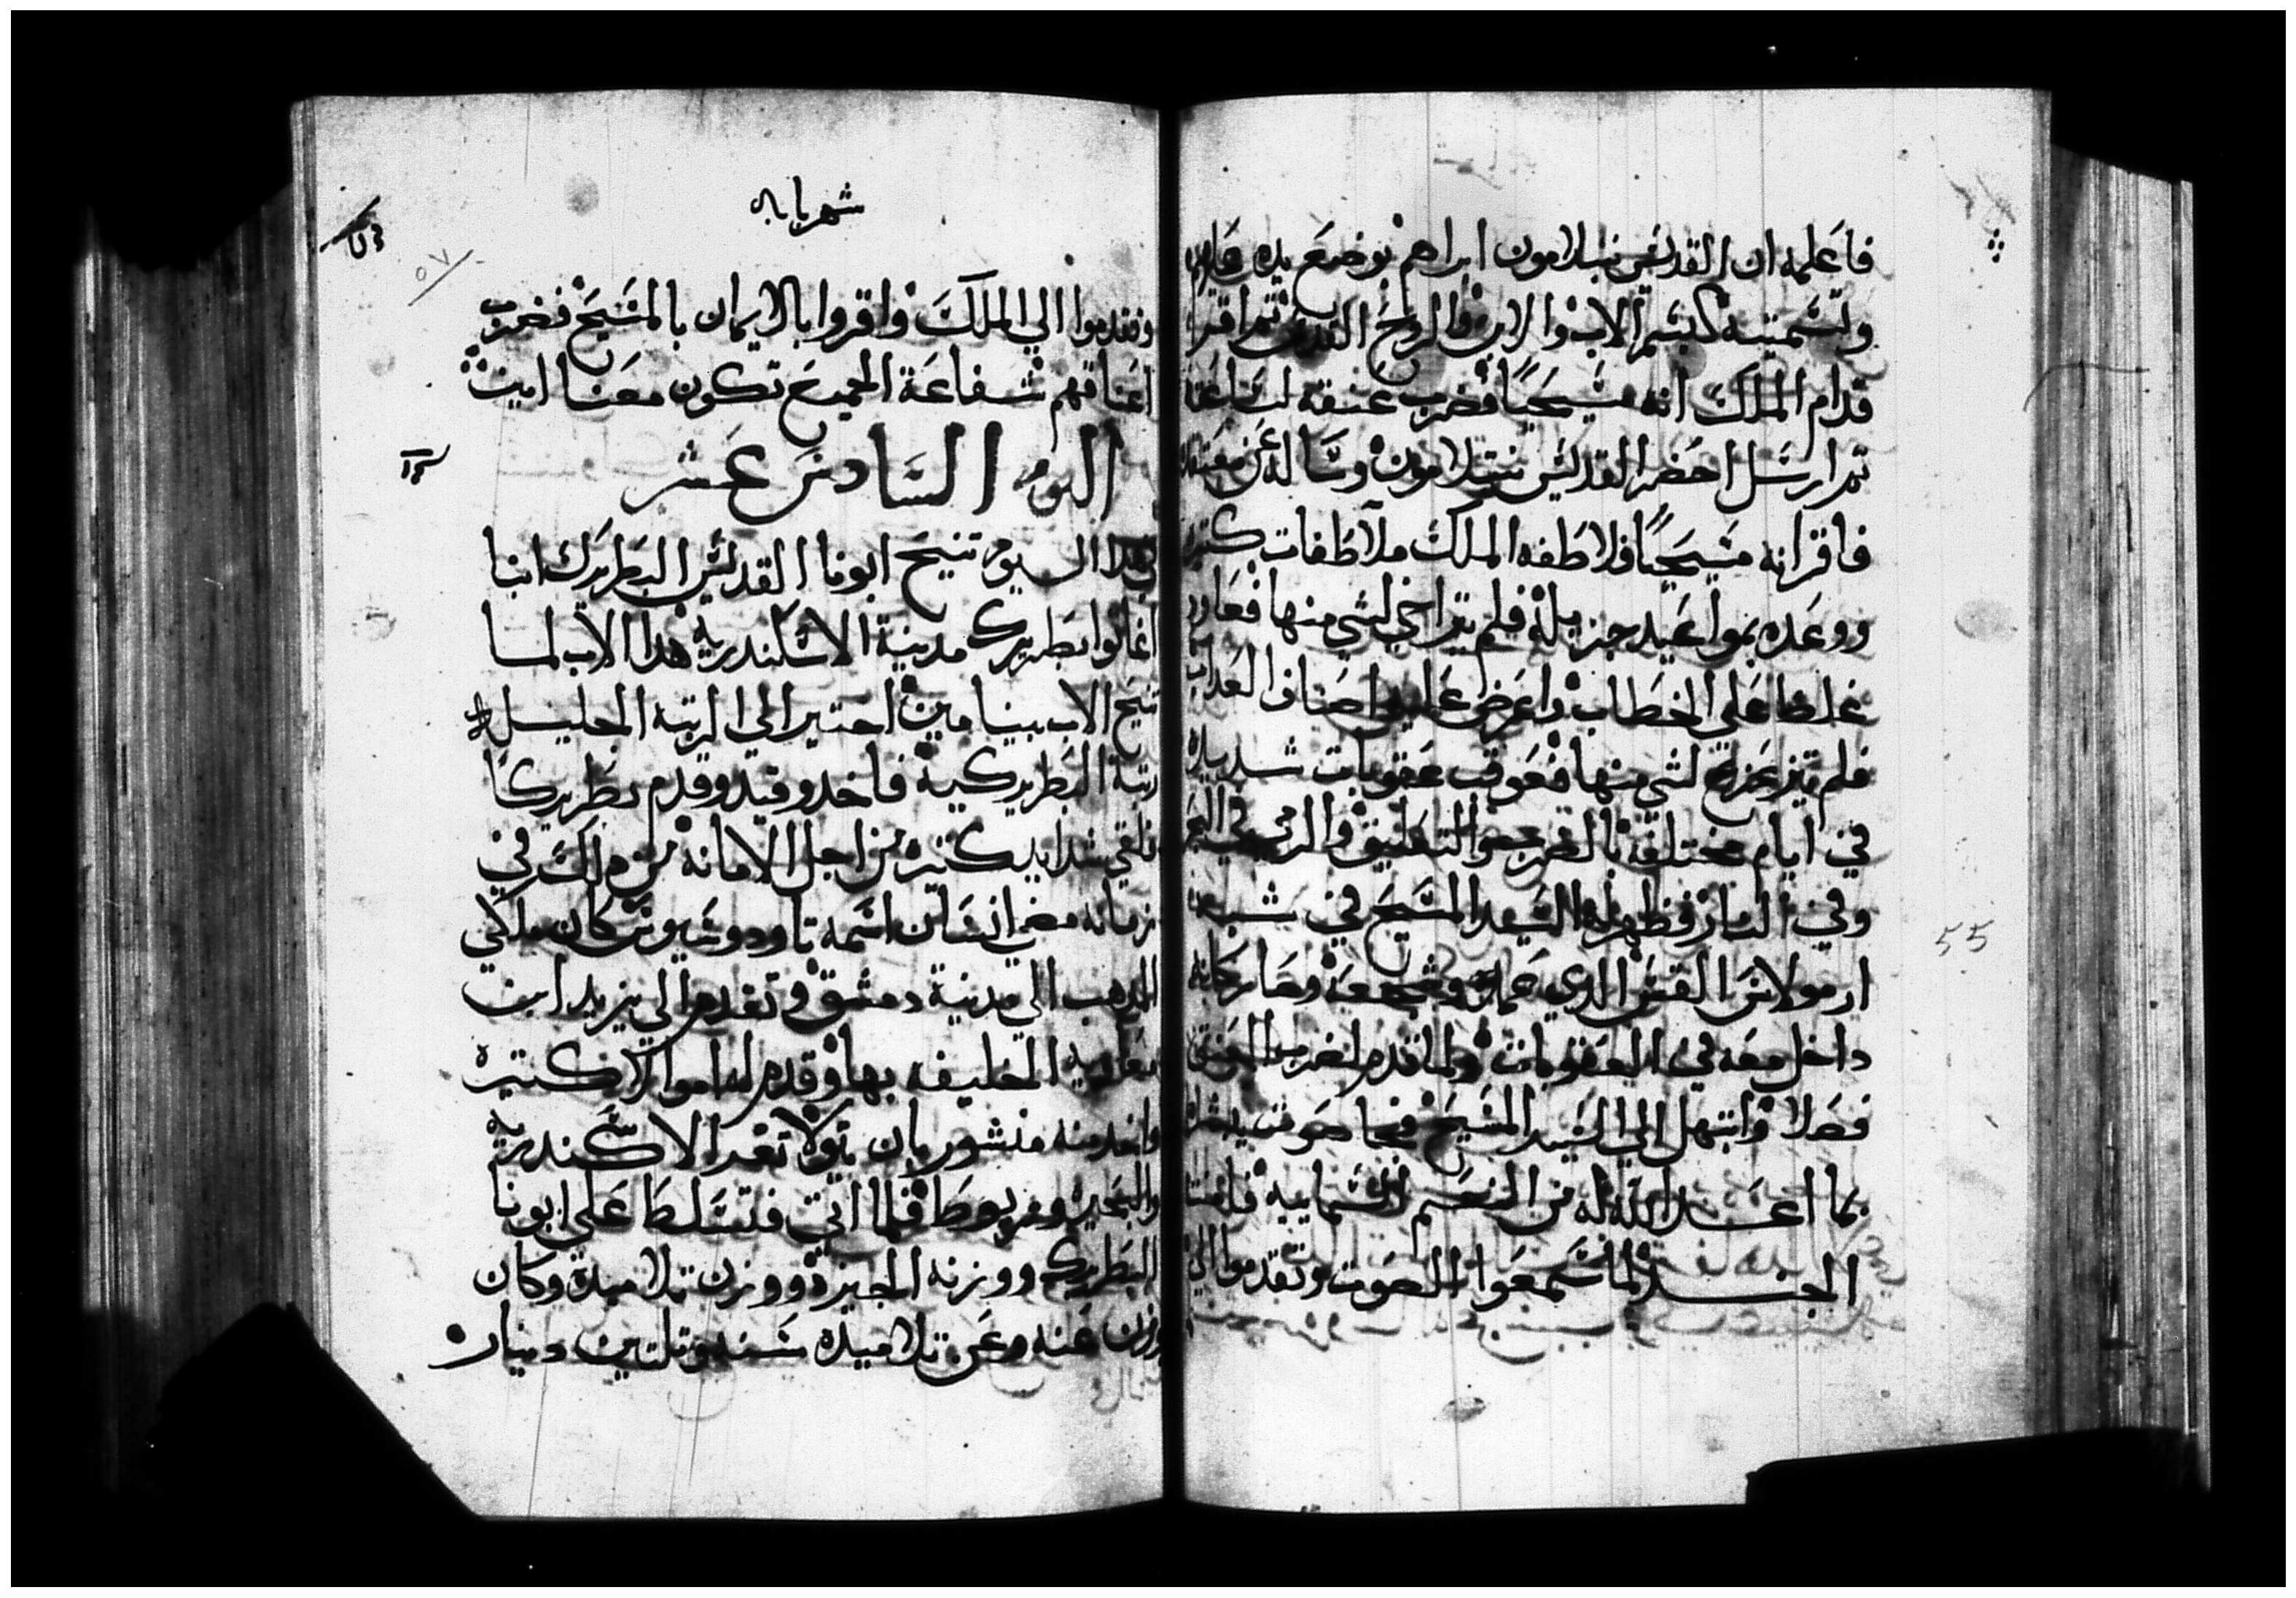 فاعلمه ان القديس بنتلامون ابراهم بوضع يده عليهم
وتسميته كبسم الاب والابن والروح القدس ثم اقر
قدام الملك انه مسيحيًا فضرب عنقه لساعته
تم ارسل احضر القديس بنتلامون وساله عن معتقده
فاقر انه مسيحيًا فلاطفه الملك ملاطفات كتيره
ووعده بمواعيد جزيله فلم يتراخي لشي منها فعاود
غلظا علي الخطاب واعرض عليه اصناف العداب
فلم يتزعزع لشي منها فعوقب عقوبات شديده
في ايام مختلفه بالضرب والتعليق والرمي في البحر
وفي النار فظهر له السيد المسيح في شبه
ارمولاس القس الدي عمده وشجعه وصار كانه
داخل معه في العقوبات ولما قدم لضرب العنق
فصلا وابتهل الي السيد المسيح فجا صوت يبشره
بما اعد الله له من النعم السماييه
الجند لما سمعوا الصوت وتقدموا الي
شهر بابه
٥٧
وتقدموا الي الملك واقروا بالايمان بالمسيح فضرب
اعناقهم شفاعة الجميع تكون معنا امين
اليوم السادس عشر
في هدا اليوم تنيح ابونا القديس البطريرك انبا
اغاتوا بطريرك مدينة الاسكندرية هدا الاب لما
تنيح الاب بينامين اختير الي الرتبه الجليله
رتبة البطريركية فاخد وقيد وقدم بطريركًا
فلقي شدايد كتيره من اجل الامانه من دلك في
زمانه مضي انسان اسمه تاودوسيوس كان ملكي
المدهب الي مدينة دمشق وتقدم الي يزيد ابن
معاويه الخليفه بها وقدم له اموالا كتيره
واخد منه منشور بان يتولا تغر الاسكندرية
والبحيرة ومريوط فلما اتي فتسلط علي ابونا
البطريرك ووزنه الجيزة ووزن تلاميده وكان
وزن عنه وعن تلاميده سته وتلتين دينار
55